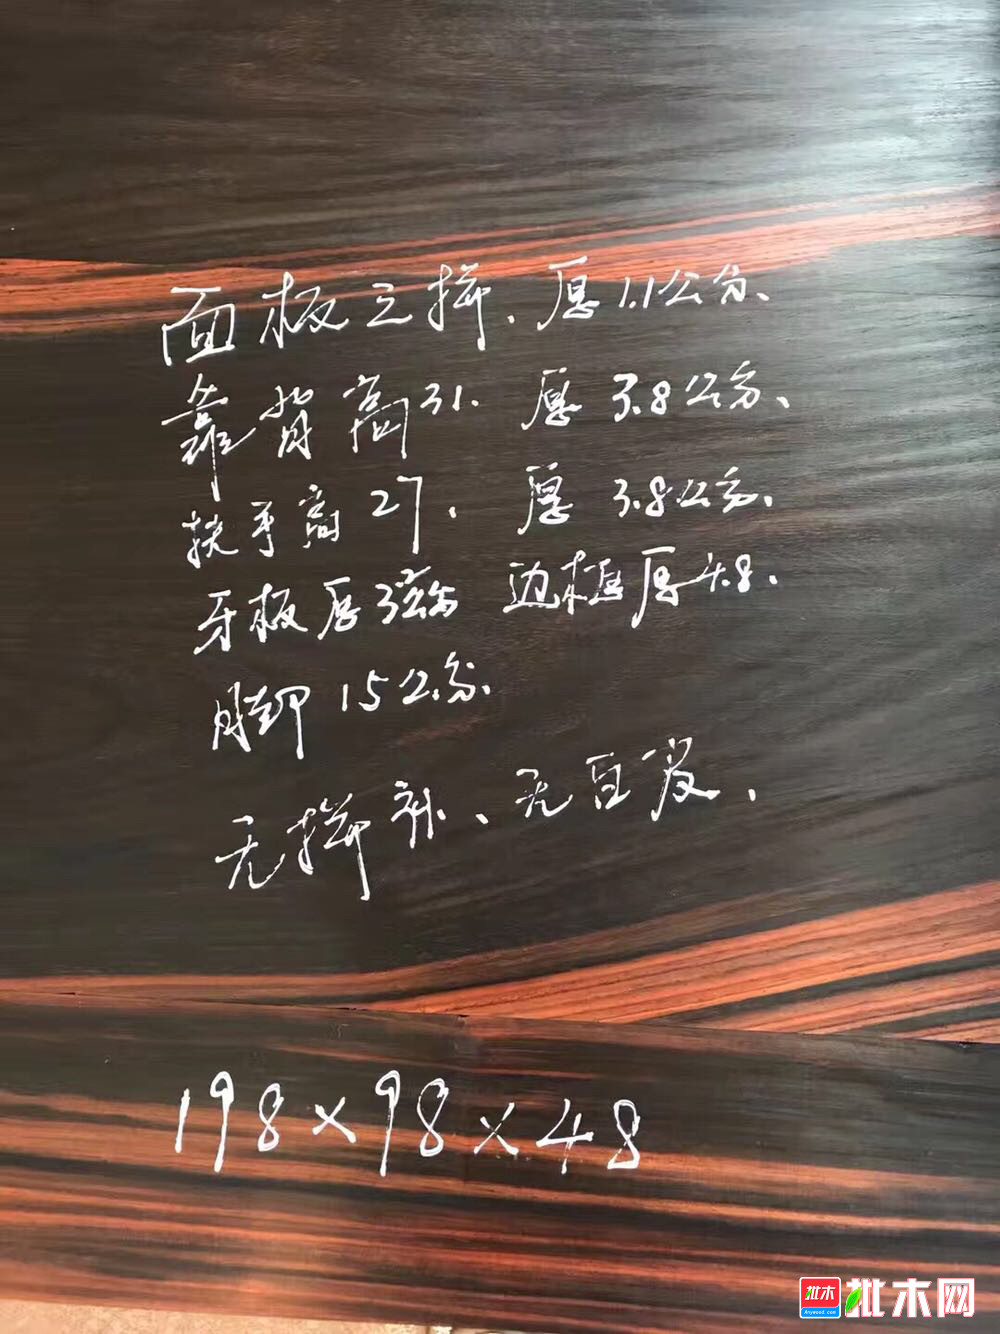 面板三拼、厚1.1公分、
靠背高31. 厚3.8公分、
扶手高27. 厚3.8公分.
牙板厚3公分 边框厚4.8.
脚15公分.
无拼补、无白皮.
198×98×48
批木 Anywood.com 批木网